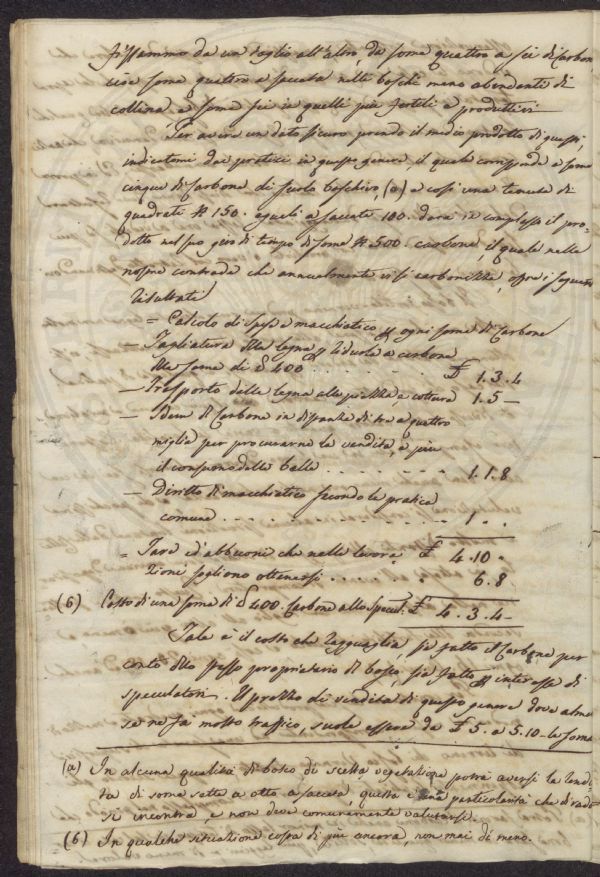 fissammo da un taglio all'altro, da some quattro a sei di Carbone,
cioè some quattro a saccata nelle boschi meno abondante di
collina e some sei in quelli più fertili e produttivi
Per avere un dato sicuro prendo il medio prodotto di questi,
indicatomi dai pratici in questo genere, il quale corrisponde a some
cinque di Carbone di suolo boschivo, (a) e così una tenuta di
quadrati N 150. eguali a saccate 100. darà in complesso il pro-
dotto nel suo giro di tempo di some N 500. carbone, il quale nelle
nostre contrade che annualmente vi si carbonizza, offre i seguenti
risultati
= Calcolo di spese e macchiatico per ogni soma di Carbone
— Tagliatura della legna per ridurla a carbone
della soma di £ 400 . . . . . . £ 1. 3. 4
— Trasporto della legna alla piazza e cottura 1. 5 —
— Idem di Carbone in distanza di tre a quattro
miglia per procurarne la vendita, e più
il consumo delle balle . . . . . . 1. 1. 8
— Diritto di macchiatico secondo la pratica
comune . . . . . . . . 1. . .
£ 4. 10 .
= Tare ed abbuoni che nelle lavora-
zioni sogliono ottenersi . . . . 6. 8
(b) Costo di una soma di £ 400. Carbone allo Specul: £ 4. 3. 4 —
Tale è il costo che ragguaglia, sia fatto il Carbone per
conto dello stesso proprietario di bosco, sia fatto per interesse di
speculatori. Il prezzo di vendita di questo genere dove alme
se ne fa molto traffico, suole essere da £ 5. a 5. 10 - la soma
(a) In alcuna qualità di bosco di scelta vegetazione potrà aversi la rendi-
ta di some sette a otto a saccata, questa è una particolarità che di rado
si incontra, e non deve comunemente valutarsi.
(b) In qualche situazione costa di più ancora, non mai di meno.